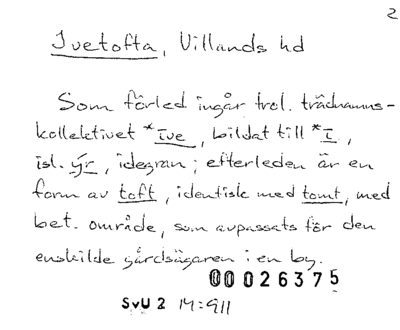 2
Ivetofta, Villands hd
Som förled ingår trol. trädnamns-
kollektivet *īve, bildat till *ī,
isl. ýr, idegran; efterleden är en
form av toft, identisk med tomt, med
bet. område, som avpassats för den
enskilde gårdsägaren i en by.
00026375
SvU 2 M:911